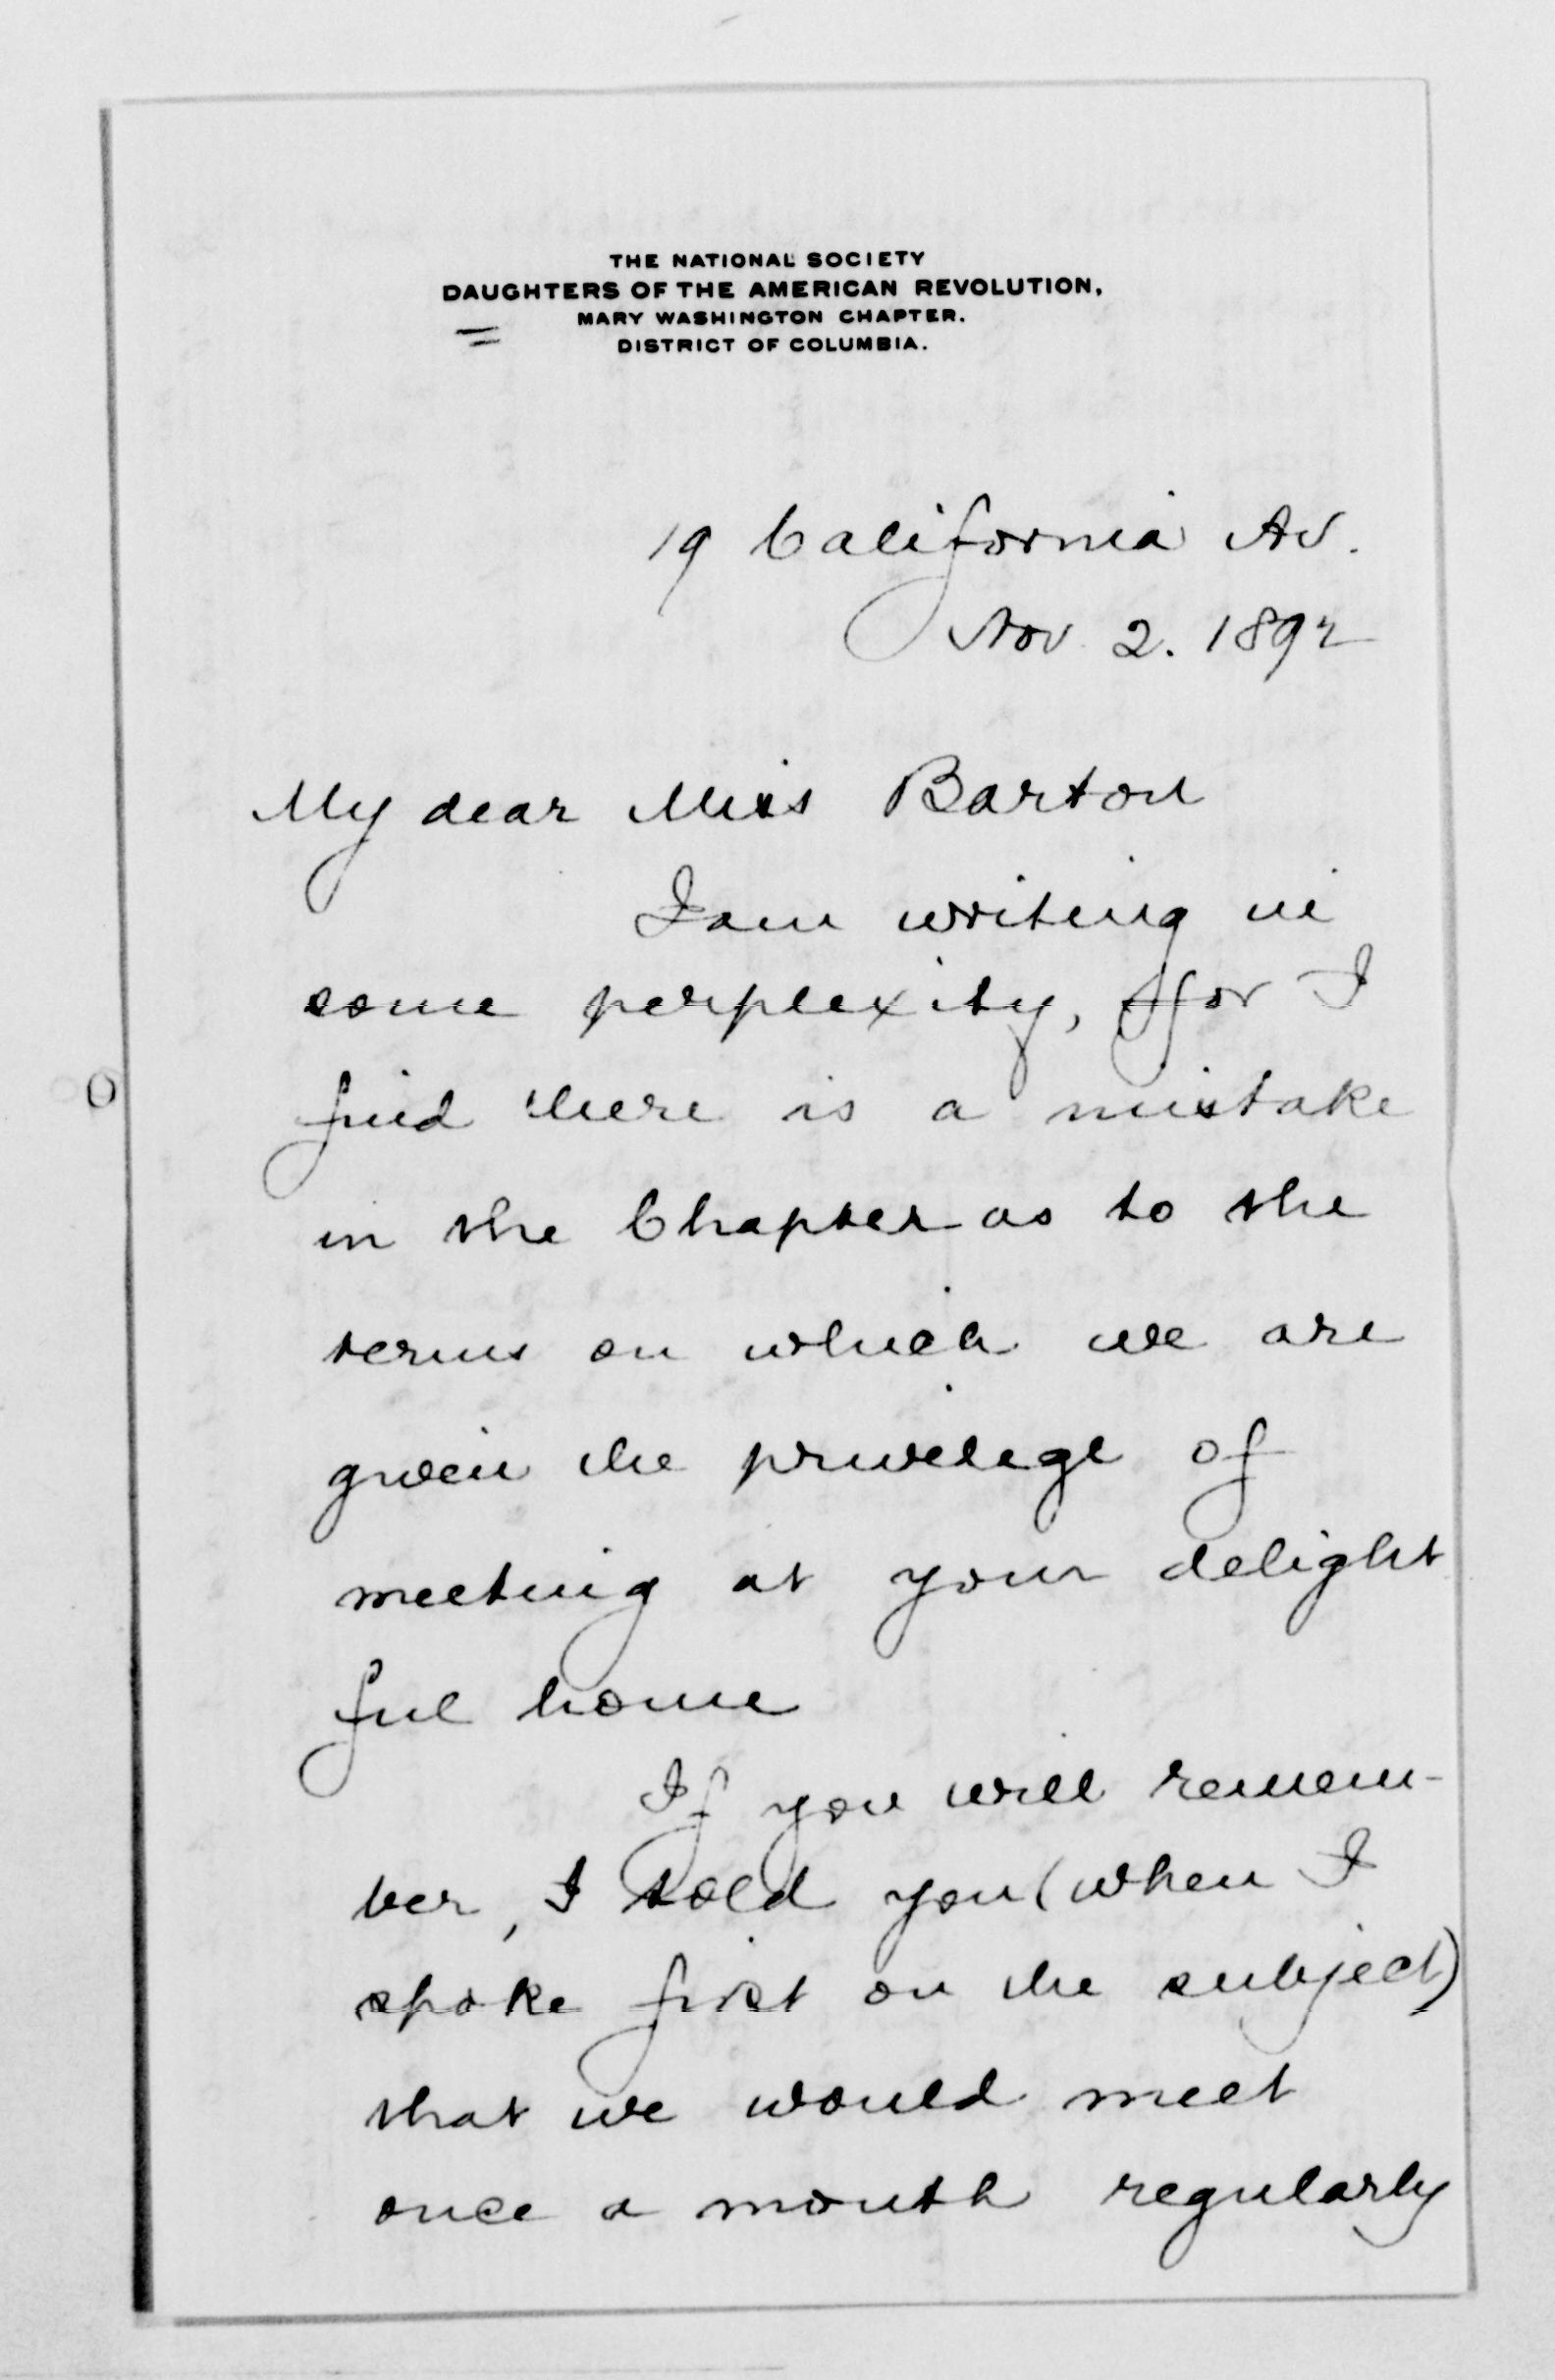 THE NATIONAL SOCIETY
DAUGHTERS OF THE AMERICAN REVOLUTION,
MARY WASHINGTON CHAPTER.
DISTRICT OF COLUMBIA.
19 California Av.
Nov. 2. 1892
My dear Miss Barton
I am writing in
some perplexity, for I
find there is a mistake
in the Chapter as to the
terms on which we are
given the privelege of
meeting at your delight
ful home
If you will remem-
ber, I told you (when I
spoke first on the subject)
that we would meet
once a month regularly